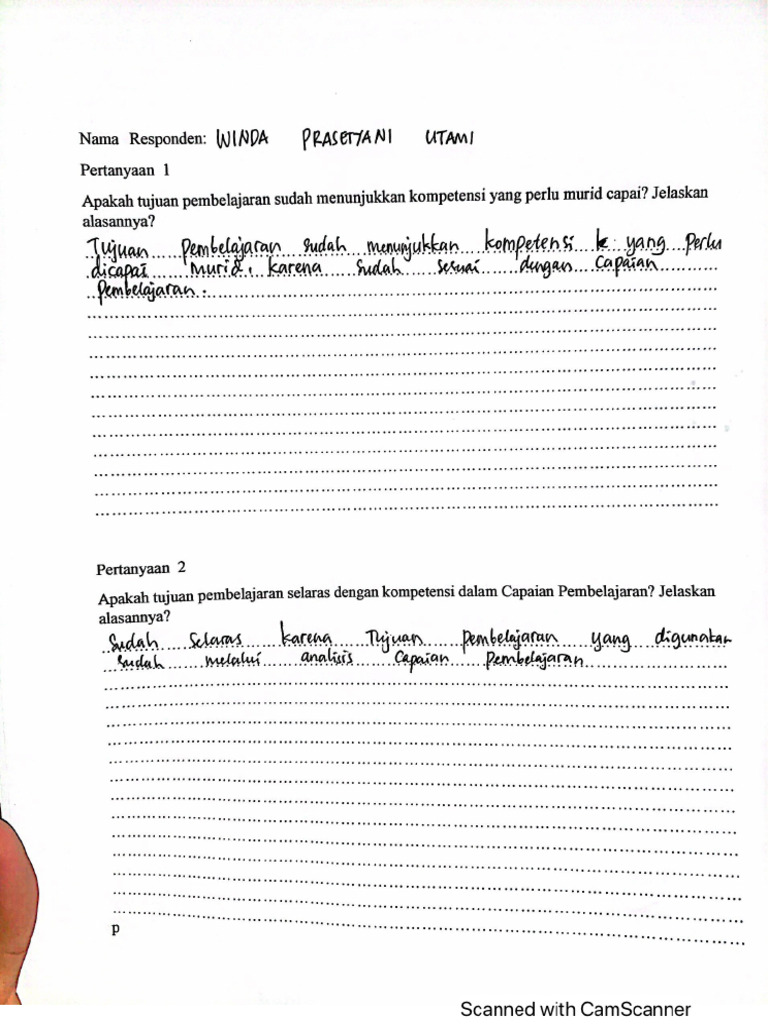 Nama Responden: WINDA PRASETYANI UTAMI
Pertanyaan 1
Apakah tujuan pembelajaran sudah menunjukkan kompetensi yang perlu murid capai? Jelaskan
alasannya?
Tujuan pembelajaran sudah menunjukkan kompetensi k yang perlu
dicapai murid, karena sudah sesuai dengan Capaian
Pembelajaran.
Pertanyaan 2
Apakah tujuan pembelajaran selaras dengan kompetensi dalam Capaian Pembelajaran? Jelaskan
alasannya?
Sudah selaras karena Tujuan pembelajaran yang digunakan
sudah melalui analisis Capaian Pembelajaran
p
Scanned with CamScanner